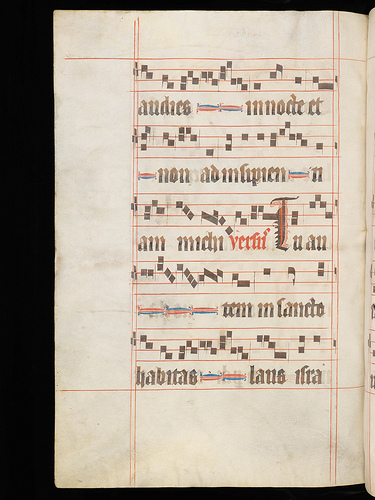 audies in nocte et
non ad insipien n
am michi versus Tu au
tem in sancto
habitas laus isra